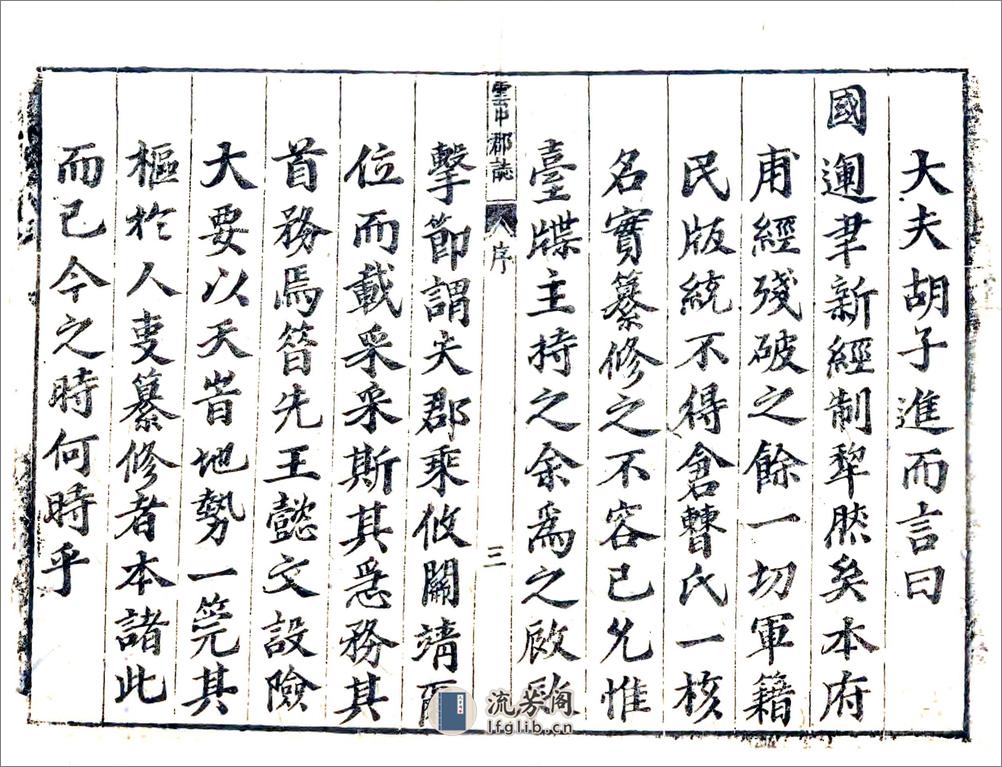 大夫胡子進而言曰
國運聿新經制犂然矣本府
甫經殘破之餘一切軍籍
民版統不得僉瞽氏一核
名實纂修之不容已允惟
臺牒主持之余爲之啟
雲中郡誌
序
三
擊節謂夫郡乘攸關靖
位而載采采斯其爲務其
首務焉昝先王懿文設險
大要以天昔地勢一筦其
樞於人叓纂修者本諸此
而已今之時何時乎
流芳阁
lfglib.cn